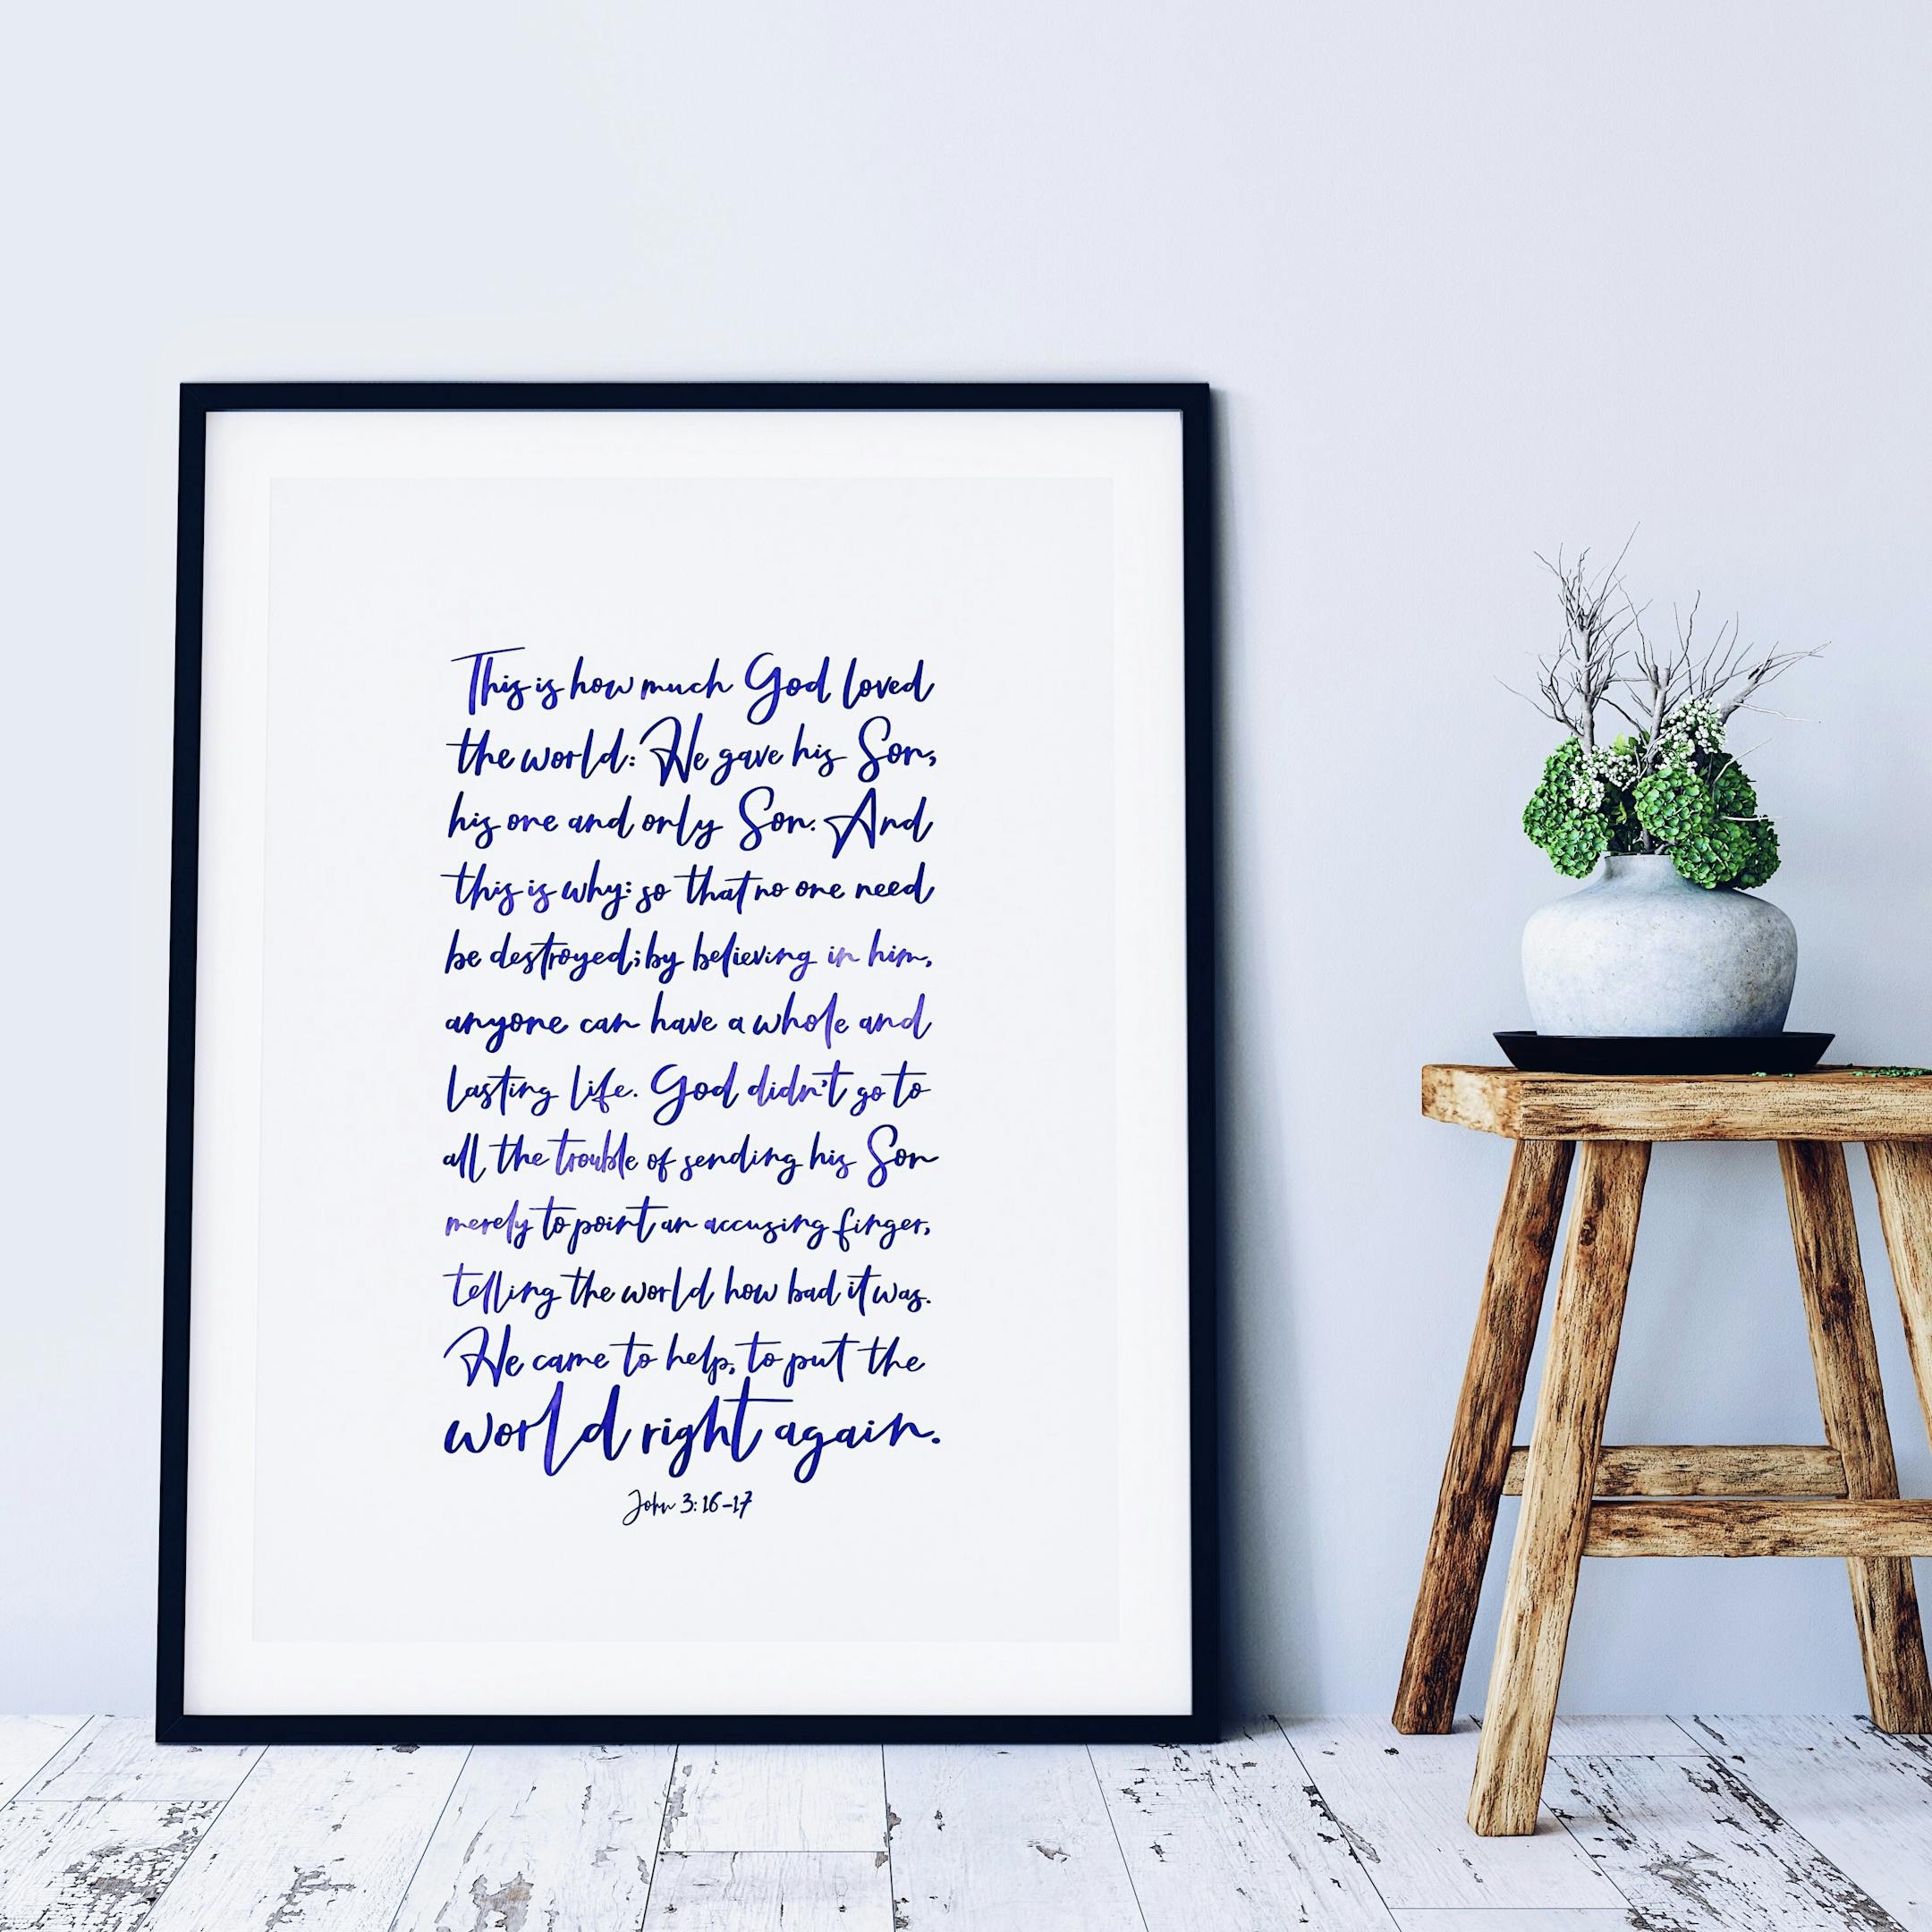 This is how much God loved
the world: He gave his Son,
his one and only Son. And
this is why: so that no one need
be destroyed; by believing in him,
anyone can have a whole and
lasting life. God didn't go to
all the trouble of sending his Son
merely to point an accusing finger,
telling the world how bad it was.
He came to help, to put the
world right again.
John 3:16-17